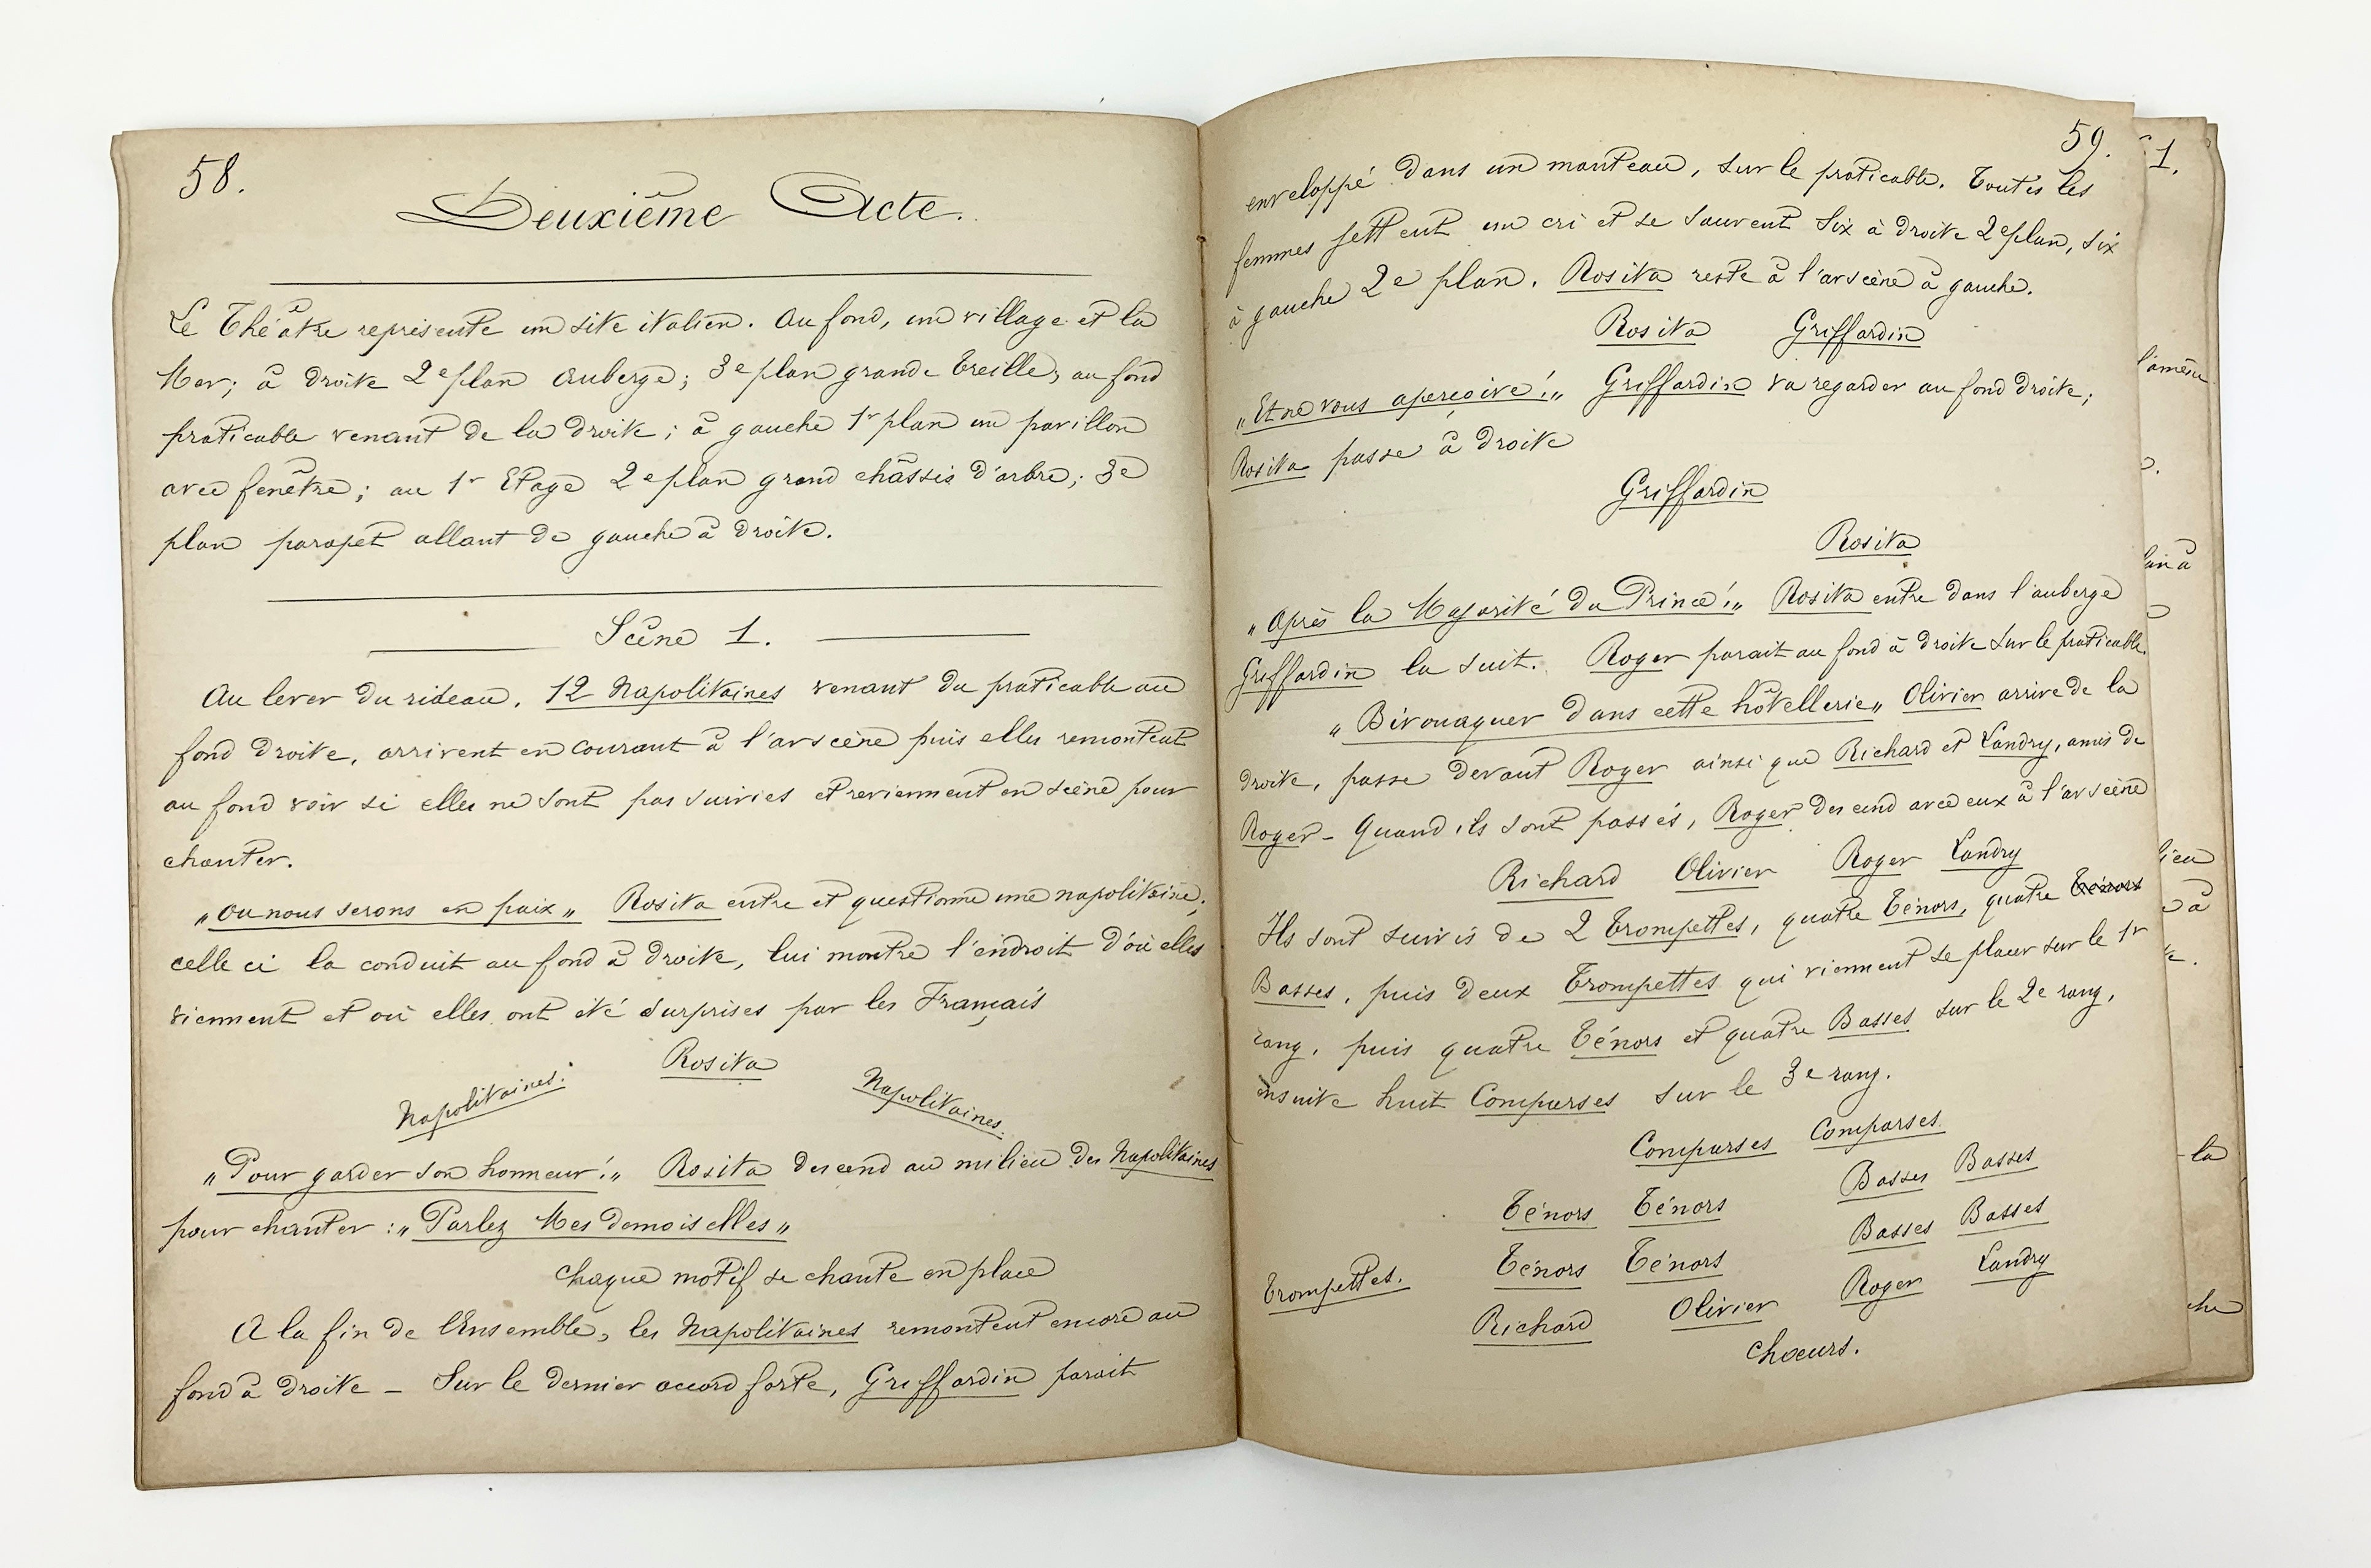 58.
Deuxième Acte.
Le Théâtre représente un site italien. Au fond, un village et la
Mer; à droite 2e plan auberge; 3e plan grande treille, au fond
praticable venant de la droite; à gauche 1r plan un pavillon
avec fenêtre; au 1r Etage 2e plan grand châssis d'arbre; 3e
plan parapet allant de gauche à droite.
Scène 1.
Au lever du rideau, 12 Napolitaines venant du praticable au
fond droite, arrivent en courant à l'avscène puis elles remontent
au fond voir si elles ne sont pas suivies et reviennent en scène pour
chanter.
„Ou nous serons en paix„ Rosita entre et questionne une napolitaine;
celle ci la conduit au fond à droite, lui montre l'endroit d'où elles
viennent et où elles ont été surprises par les Français
Rosita
Napolitaines. Napolitaines.
„Pour garder son honneur!„ Rosita descend au milieu des Napolitaines
pour chanter: „Parlez Mesdemoiselles„
Chaque motif se chante en place
A la fin de l'Ensemble, les Napolitaines remontent encore au
fond à droite – Sur le dernier accord forte, Griffardin parait
59.
enveloppé dans un manteau, sur le praticable. Toutes les
femmes jettent un cri et se sauvent six à droite 2e plan, six
à gauche 2e plan. Rosita reste à l'avscène à gauche.
Rosita Griffardin
„Et ne vous aperçoive!„ Griffardin va regarder au fond droite;
Rosita passe à droite
Griffardin
Rosita
„Après la Majorité du Prince!„ Rosita entre dans l'auberge
Griffardin la suit. Roger parait au fond à droite sur le praticable.
„Bivouaquer dans cette hôtellerie„ Olivier arrive de la
droite, passe devant Roger ainsi que Richard et Landry, amis de
Roger – Quand ils sont passés, Roger descend avec eux à l'avscène
Richard Olivier Roger Landry
Ils sont suivis de 2 Trompettes, quatre Ténors, quatre Ténors
Basses, puis deux Trompettes qui viennent se placer sur le 1r
rang, puis quatre Ténors et quatre Basses sur le 2e rang,
ensuite huit Comparses sur le 3e rang.
Comparses Comparses
Ténors Ténors Basses Basses
Ténors Ténors Basses Basses
Trompettes. Richard Olivier Roger Landry
Chœurs.
1.
la